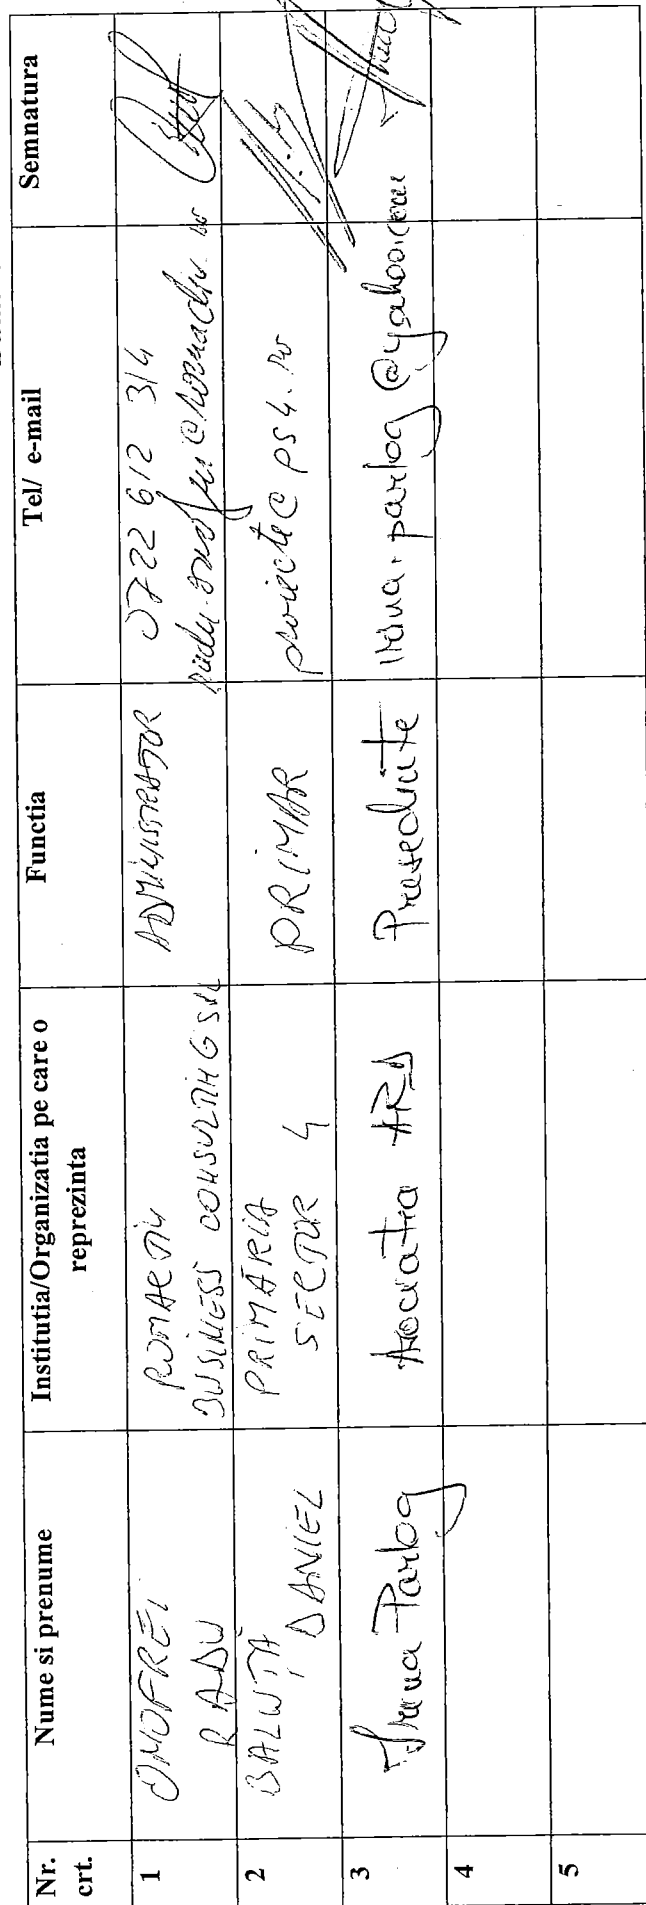 Nr. crt.
Nume si prenume
Institutia/Organizatia pe care o reprezinta
Functia
Tel/ e-mail
Semnatura
1
ONOFREI
RADU
BUSINESS CONSULTING SRL
ADMINISTRATOR
0722 612 314
2
BALUTĂ
DANIEL
PRIMĂRIA
SECTOR 4
PRIMAR
proiecte@ps4.ro
3
Irina Parlog
Asociatia ARD
Presedinte
irina.parlog@yahoo.com
4
5